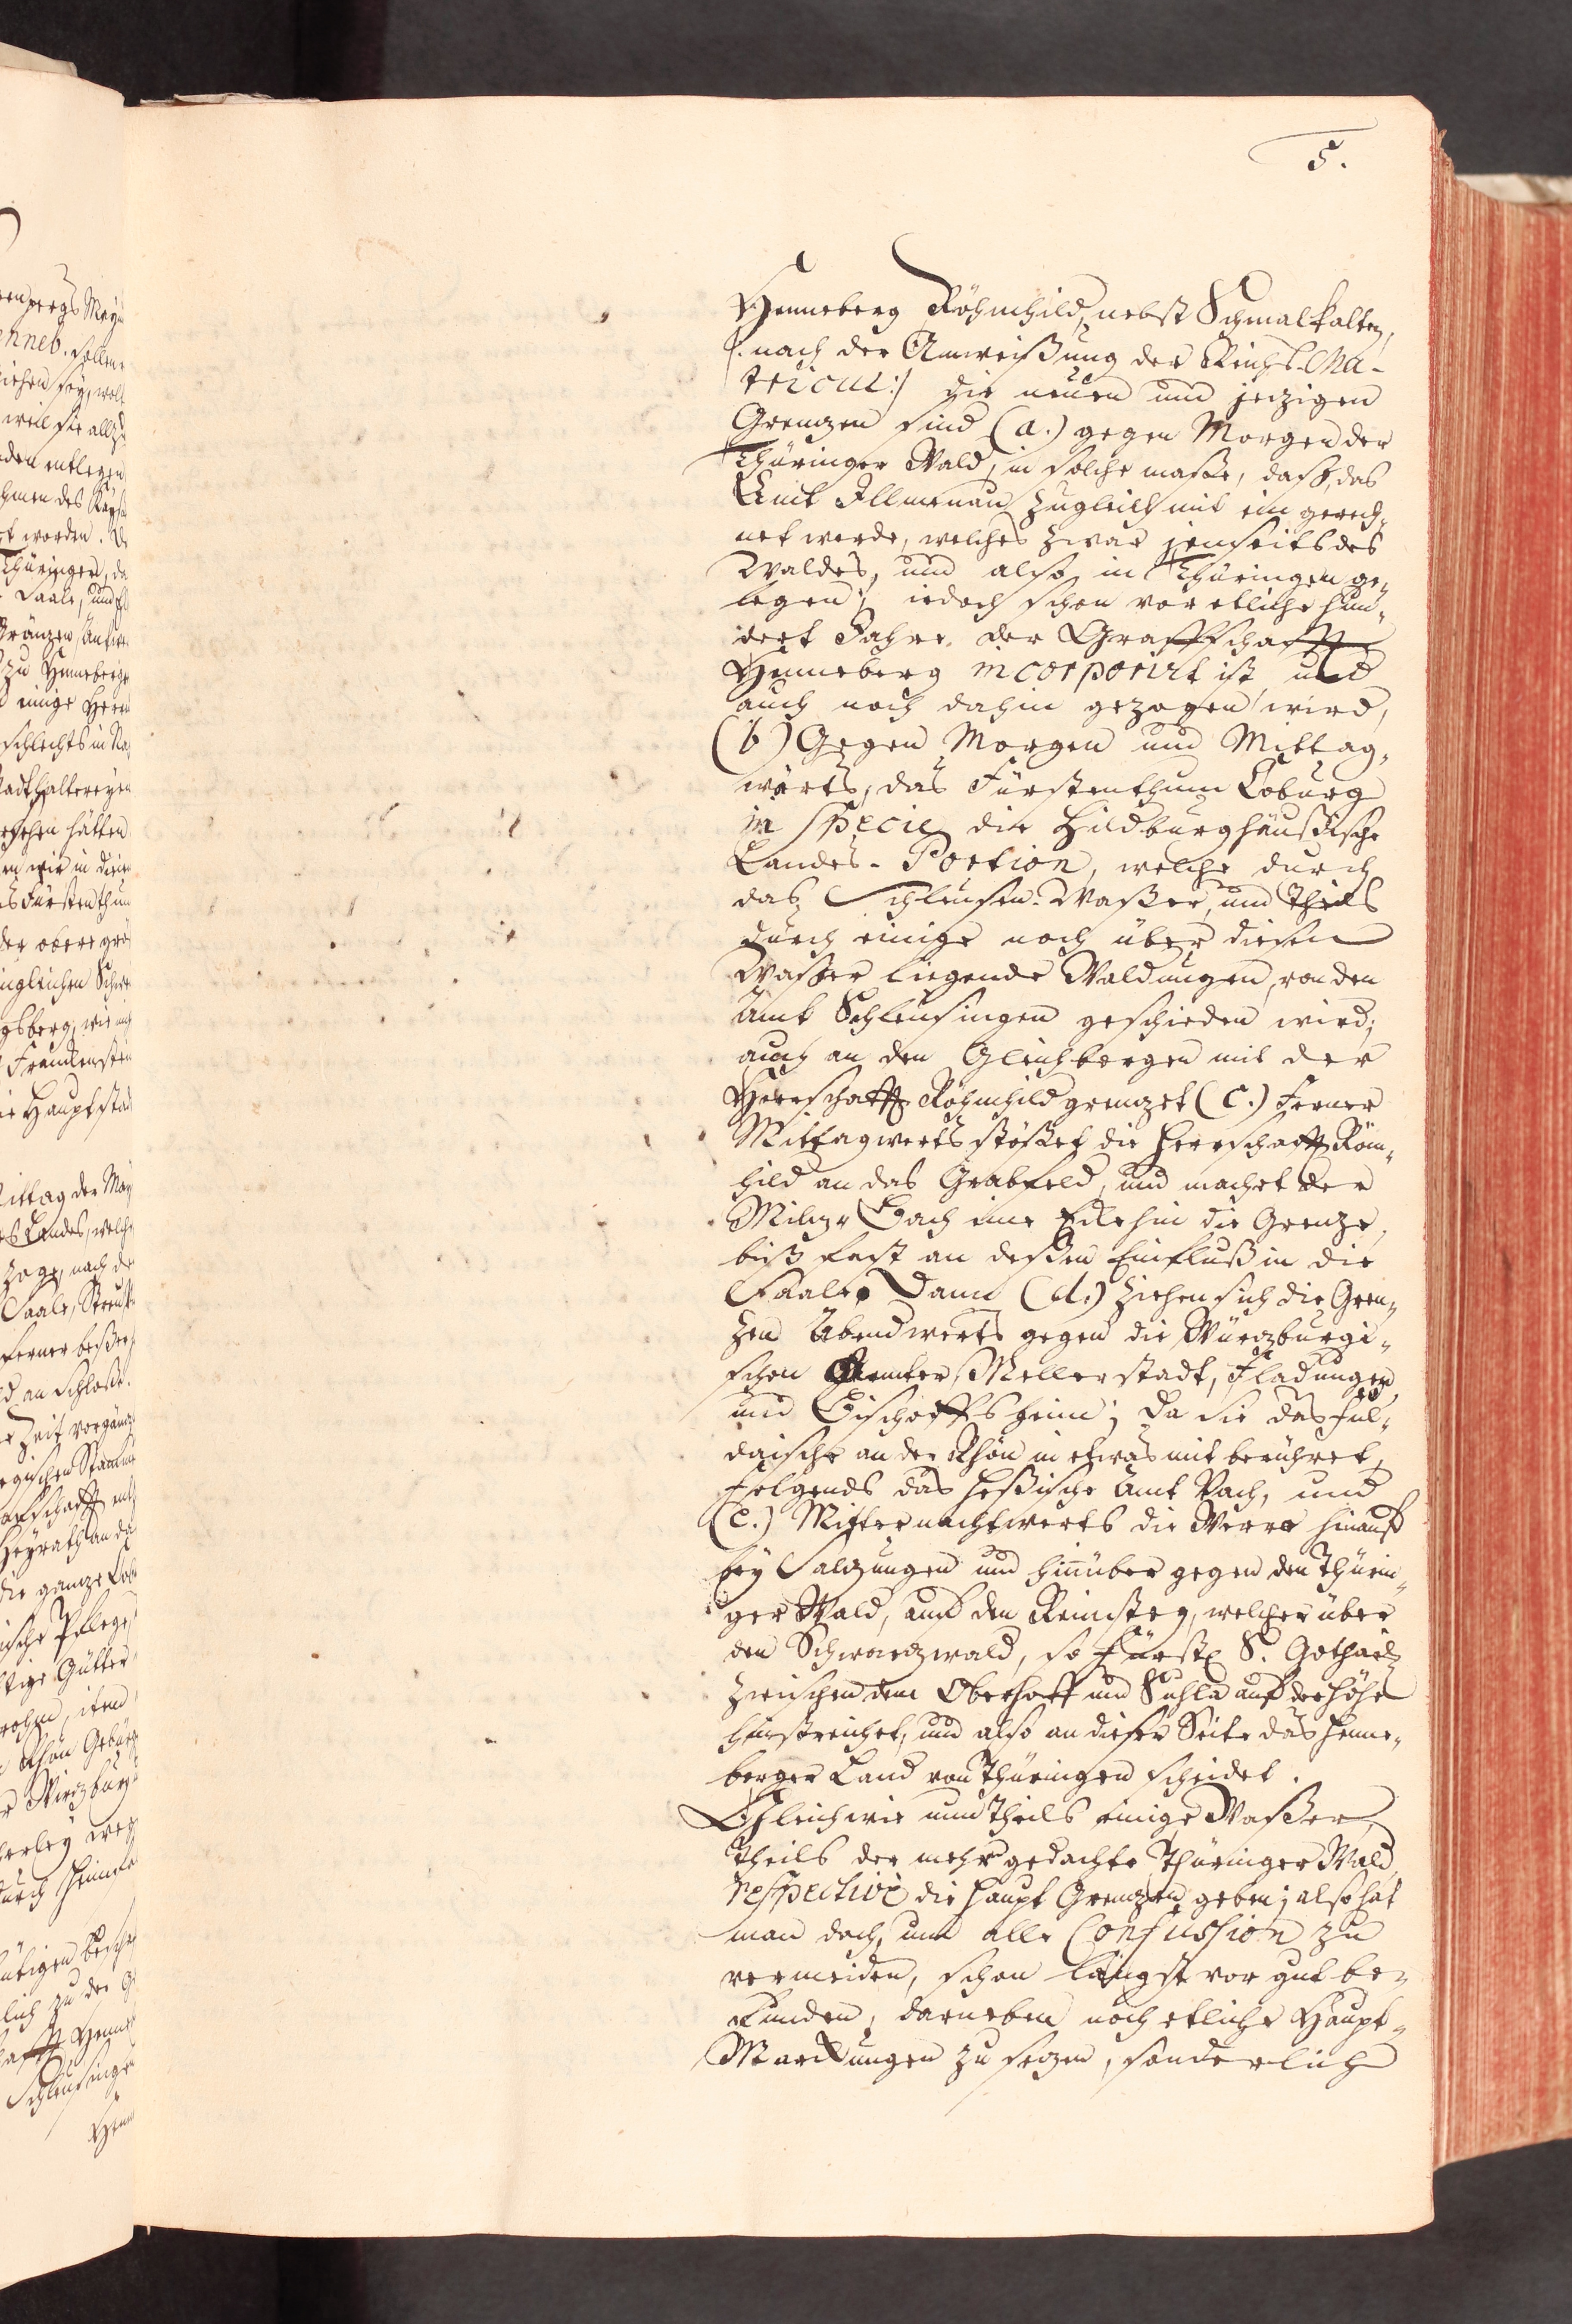 5.
Henneberg Röhmhild, nebst Schmalkalten,
/: nach der Anweißung der Reichs-Ma-
tricul :/ die neuen und jezigen
Grenzen sind (a.) gegen Morgen der
Thüringer Wald, in solche maße, daß, das
Amt Illmenau zugleich mit ein gerech-
net werde, welches zwar jenseits des
Waldes, und also in Thüringen ge-
legen; iedoch schon vor etliche hun-
dert Jahre der Graffschafft
Henneberg incorporirt ist, und
auch noch dahin gezogen wird,
(b) Gegen Morgen und Mittag-
wärts, das Fürstenthum Coburg
in specie die Hildburghäußische
Landes-Portion, welche durch
das Schleusen-Waßer, und theils
durch einige noch über diesen
Waßer liegende Waldungen, von den
Amt Schleusingen geschieden wird;
auch an den Gleichbergen mit der
Herrschafft Röhmhild grenzet (c.) Ferner
Mittagwerts stößet die Herrschafft Röm-
hild an das Grabfeld, und machet der
Milz-Bach eine Ecke hin die Grenze,
biß fast an deßen Einfluß in die
Saale. Dann (d.) ziehen sich die Gren-
zen Abendwerts gegen die Würzburgi-
schen Aemter, Mellerstadt, Fladungen
und Bischoffsheim; da sie das Ful-
daische an der Rhön in etwas mit berühret,
folgends das Heßische Amt Vach, und
(e.) Mitternachtwerts die Werre hinauß
bey Salzungen und hinüber gegen den Thürin-
ger Wald, auf den Reinsteg, welcher über
den Schwarzwald, so Fürstl. S. Gothais.
zwischen dem Oberhoff und Suhla auf der Höhe
hinstreichet, und also an dieser Seite das Henne-
berger Land von Thüringen scheidet.
Gleichwie nun theils einige Waßer,
theils der mehr gedachte Thüringer Wald
respectivè die Haupt Grenzen geben; also hat
man doch, um alle Confussion zu
vermeiden, schon längst vor gut be-
funden, darneben noch etliche Haupt-
Marckungen zu sezen, sonderlich